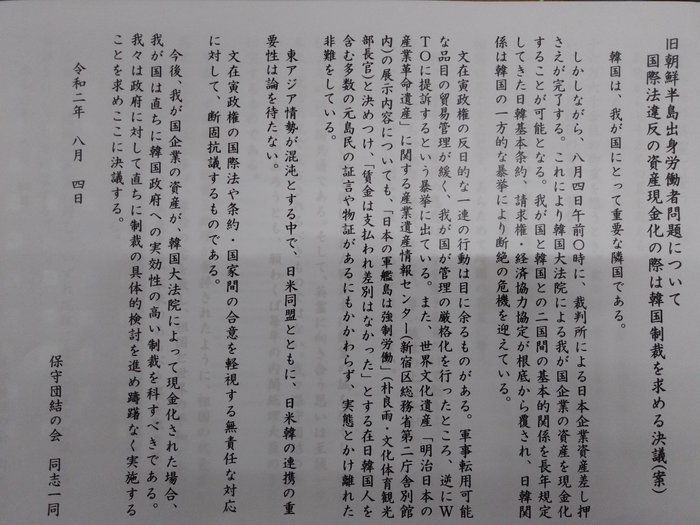 旧朝鮮半島出身労働者問題について
国際法違反の資産現金化の際は韓国制裁を求める決議(案)
韓国は、我が国にとって重要な隣国である。
しかしながら、八月四日午前〇時に、裁判所による日本企業資産差し押
さえが完了する。これにより韓国大法院による我が国企業の資産を現金化
することが可能となる。我が国と韓国との二国間の基本的関係を長年規定
してきた日韓基本条約、請求権・経済協力協定が根底から覆され、日韓関
係は韓国の一方的な暴挙により断絶の危機を迎えている。
文在寅政権の反日的な一連の行動は目に余るものがある。軍事転用可能
な品目の貿易管理が緩く、我が国が管理の厳格化を行ったところ、逆にW
TOに提訴するという暴挙に出ている。また、世界文化遺産「明治日本の
産業革命遺産」に関する産業遺産情報センター(新宿区総務省第二庁舎別館
内)の展示内容についても、「日本の軍艦島は強制労働」(朴良雨・文化体育観光
部長官)と決めつけ、「賃金は支払われ差別はなかった」とする在日韓国人を
含む多数の元島民の証言や物証があるにもかかわらず、実態とかけ離れた
非難をしている。
東アジア情勢が混沌とする中で、日米同盟とともに、日米韓の連携の重
要性は論を待たない。
文在寅政権の国際法や条約・国家間の合意を軽視する無責任な対応
に対して、断固抗議するものである。
今後、我が国企業の資産が、韓国大法院によって現金化された場合、
我が国は直ちに韓国政府への実効性の高い制裁を科すべきである。
我々は政府に対して直ちに制裁の具体的検討を進め躊躇なく実施する
ことを求めここに決議する。
令和二年 八月 四日
保守団結の会 同志一同